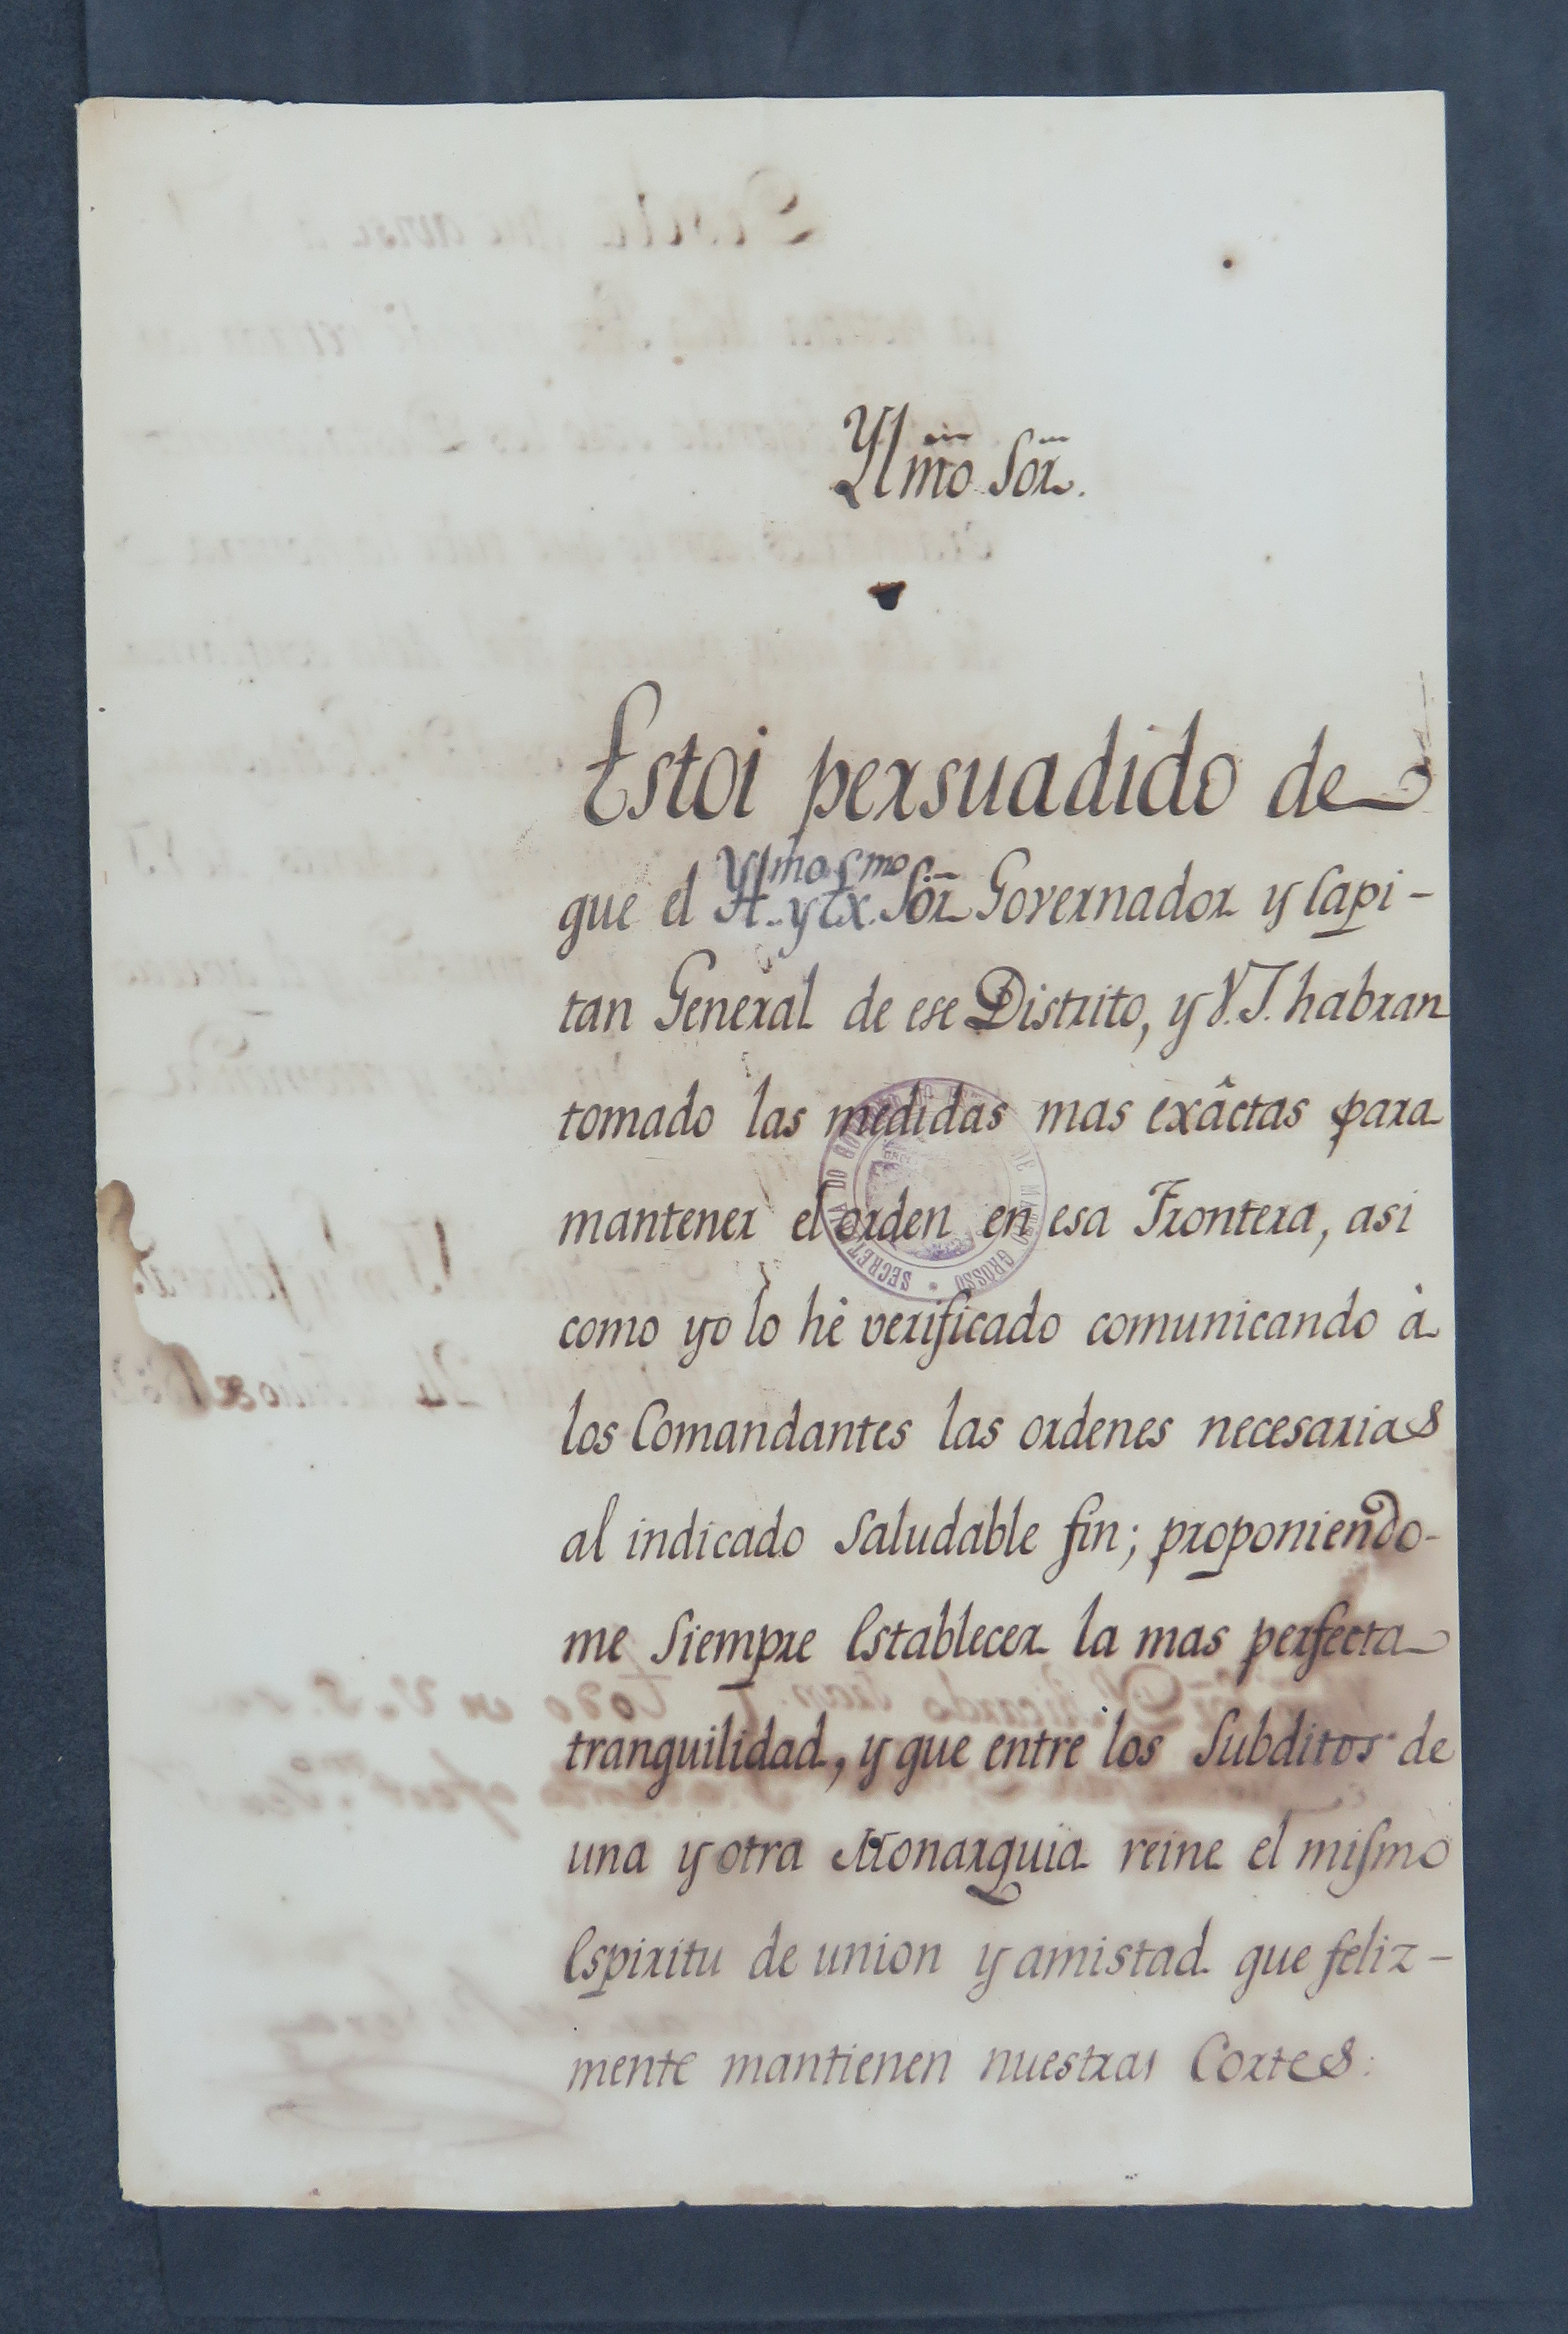 Ylmo Sor.
Estoi persuadido de
que el Ylmo y Exmo Sor Governador y Capi-
tan General de ese Distrito, y V.I. habran
tomado las medidas mas exâctas para
mantener el orden en esa Frontera, asi
como yo lo hê verificado comunicando à
los Comandantes las ordenes necesarias
al indicado saludable fin; proponiendo-
me siempre establecer la mas perfecta
tranquilidad, y que entre los Subditos de
una y otra Monarquia reine el mismo
espiritu de union y amistad que feliz-
mente mantienen nuestras Cortes.
SECRET DO DE MATTO GROSSO